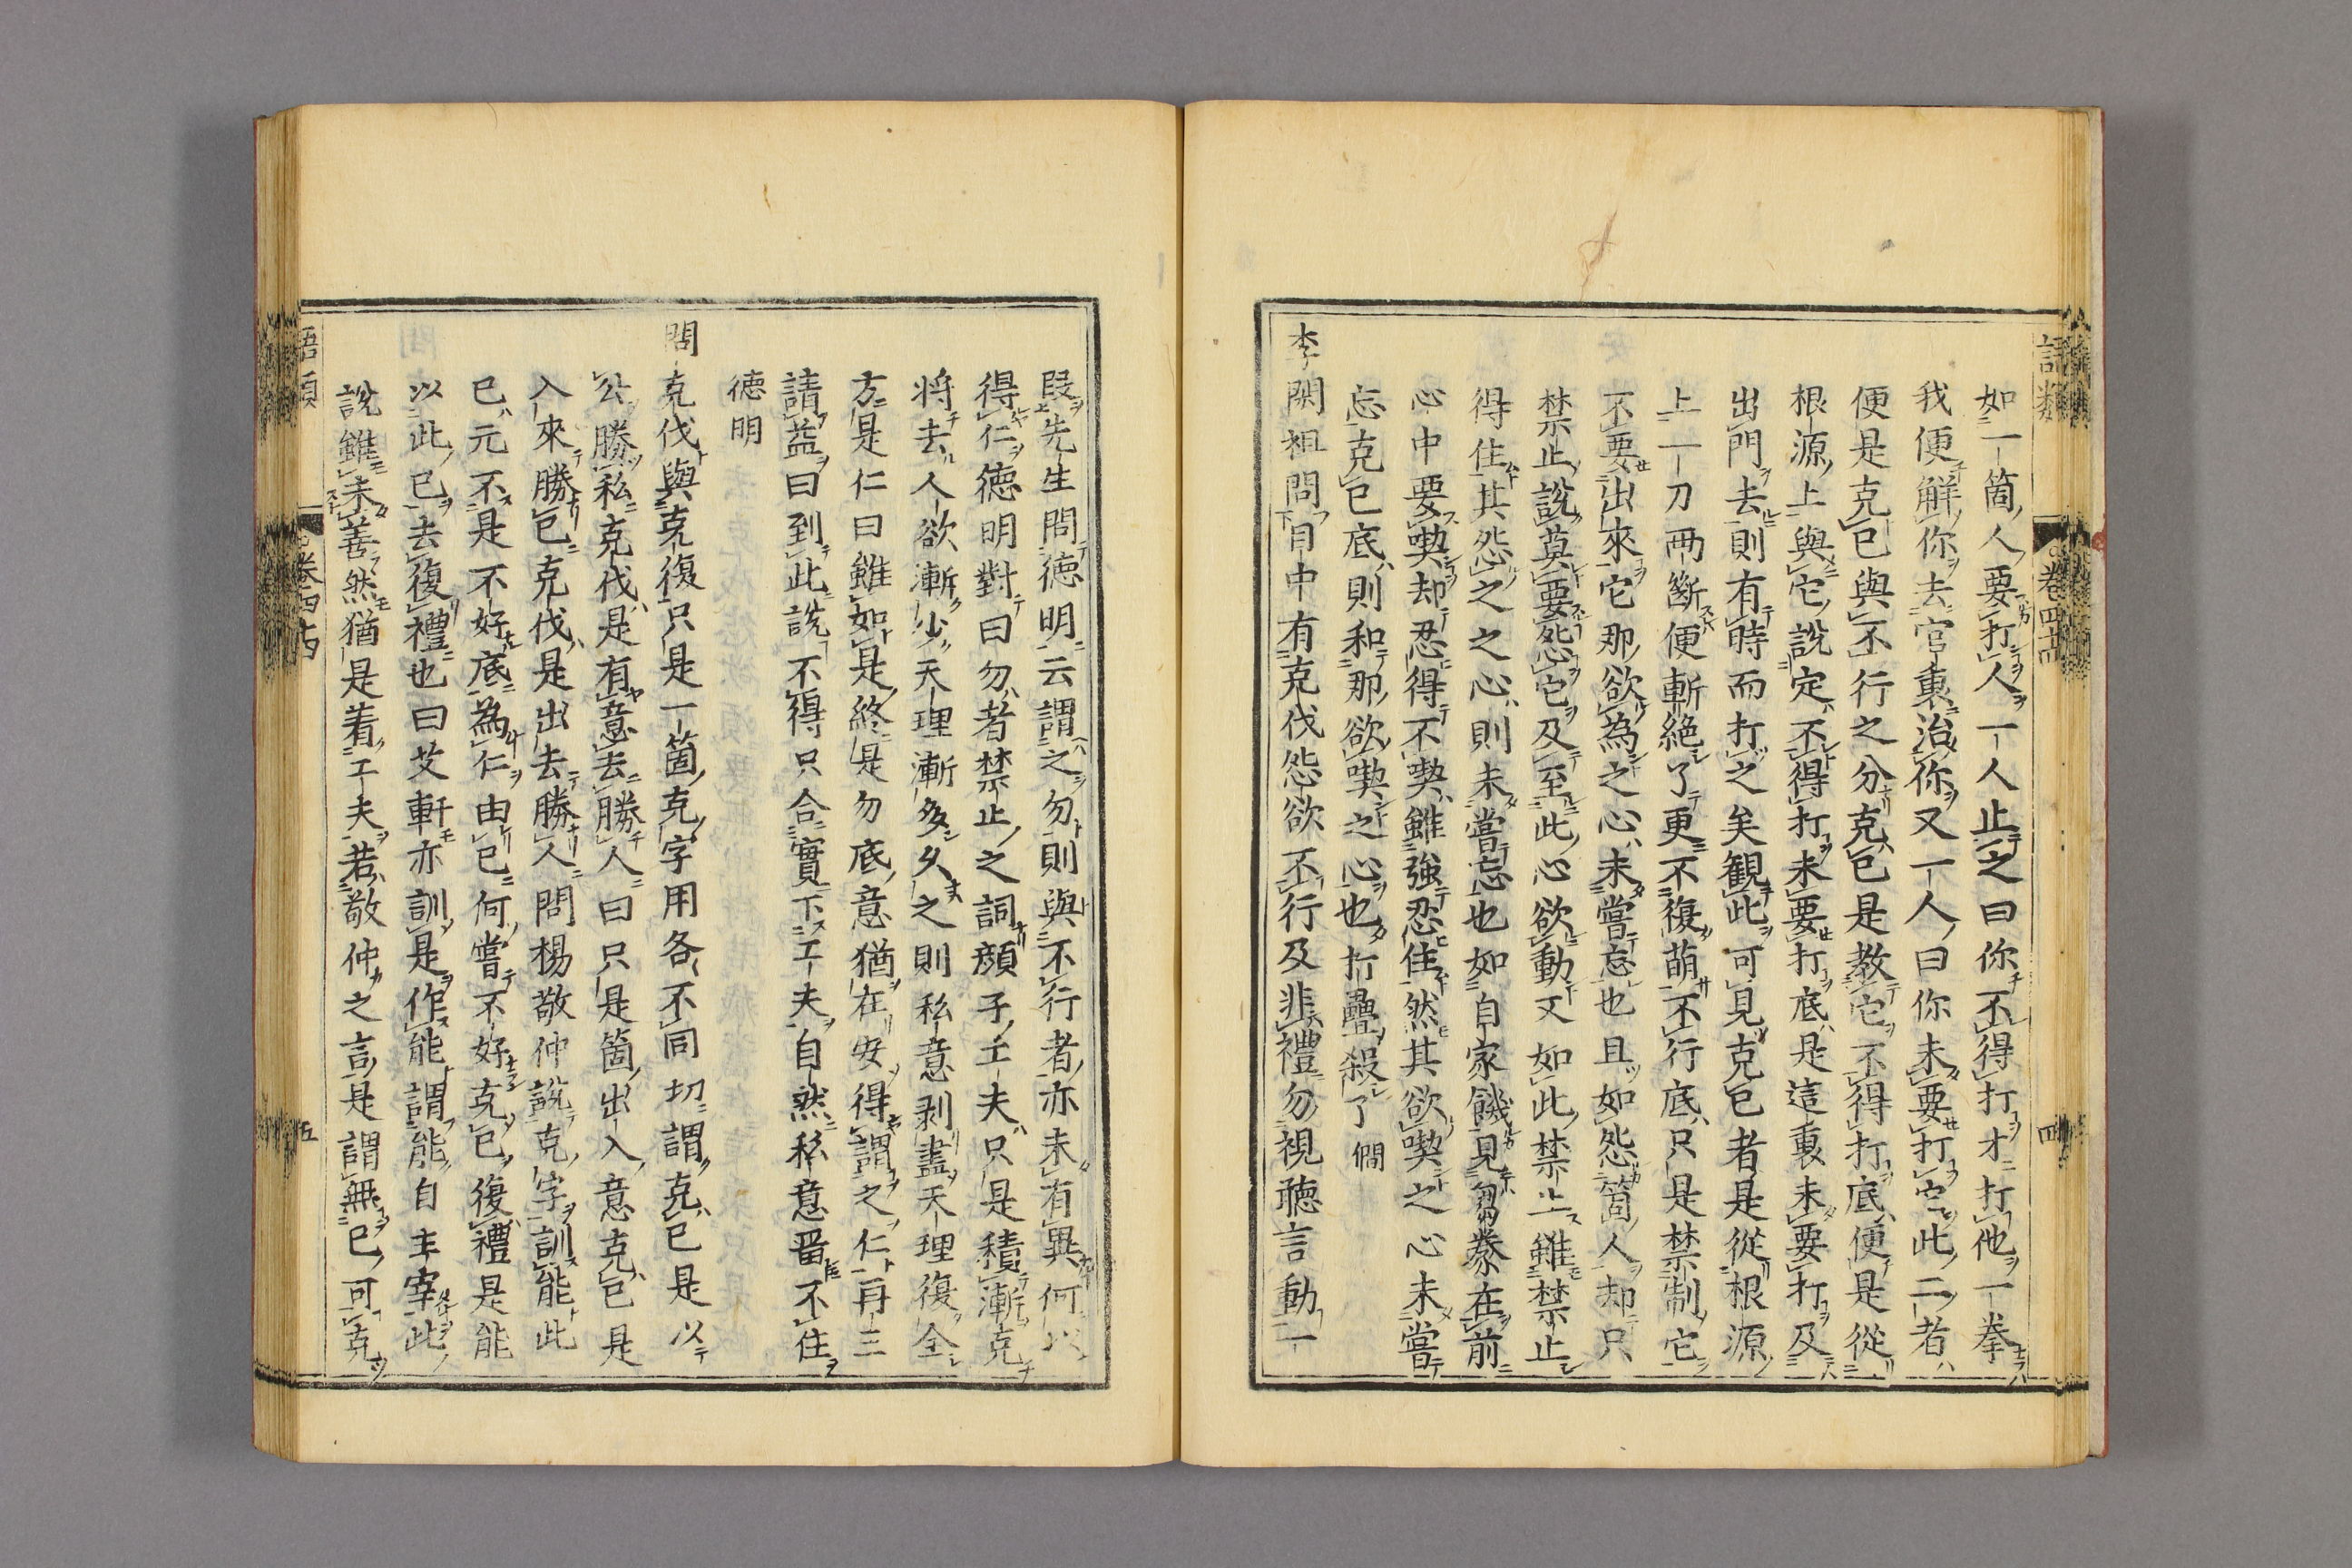 語類
卷四十四
四
如一箇人要打人一人止之曰你不得打才打他一拳
我便解你去官裏治你又一人曰你未要打它此二者
便是克己與不行之分克己是教它不得打底便是從
根源上與它說定不得打未要打底是這裏未要打及
出門去則有時而打之矣觀此可見克己者是從根源
上一刀兩斷便斬絕了更不復萌不行底只是禁制它
不要出來它那欲為之心未嘗忘也且如怨箇人却只
禁止說莫要怨它及至此心欲動又如此禁止雖禁止
得住其怨之之心則未嘗忘也如自家饑見芻豢在前
心中要喫却忍得不喫雖強忍住然其欲喫之心未嘗
忘克己底則和那欲喫之心也打疊殺了僩
李閎祖問目中有克伐怨欲不行及非禮勿視聽言動一
段先生問德明云謂之勿則與不行者亦未有異何以
得仁德明對曰勿者禁止之詞顏子工夫只是積漸克
將去人欲漸少天理漸多久之則私意剥盡天理復全
方是仁曰雖如是終是勿底意猶在安得謂之仁再三
請益曰到此說不得只合實下工夫自然私意畱不住
德明
問克伐與克復只是一箇克字用各不同切謂克己是以
公勝私克伐是有意去勝人曰只是箇出入意克己是
入來勝己克伐是出去勝人問楊敬仲說克字訓能此
己元不是不好底為仁由己何嘗不好克己復禮是能
以此己去復禮也曰艾軒亦訓是作能謂能自主宰此
說雖未善然猶是着工夫若敬仲之言是謂無己可克
語類
卷四十四
五